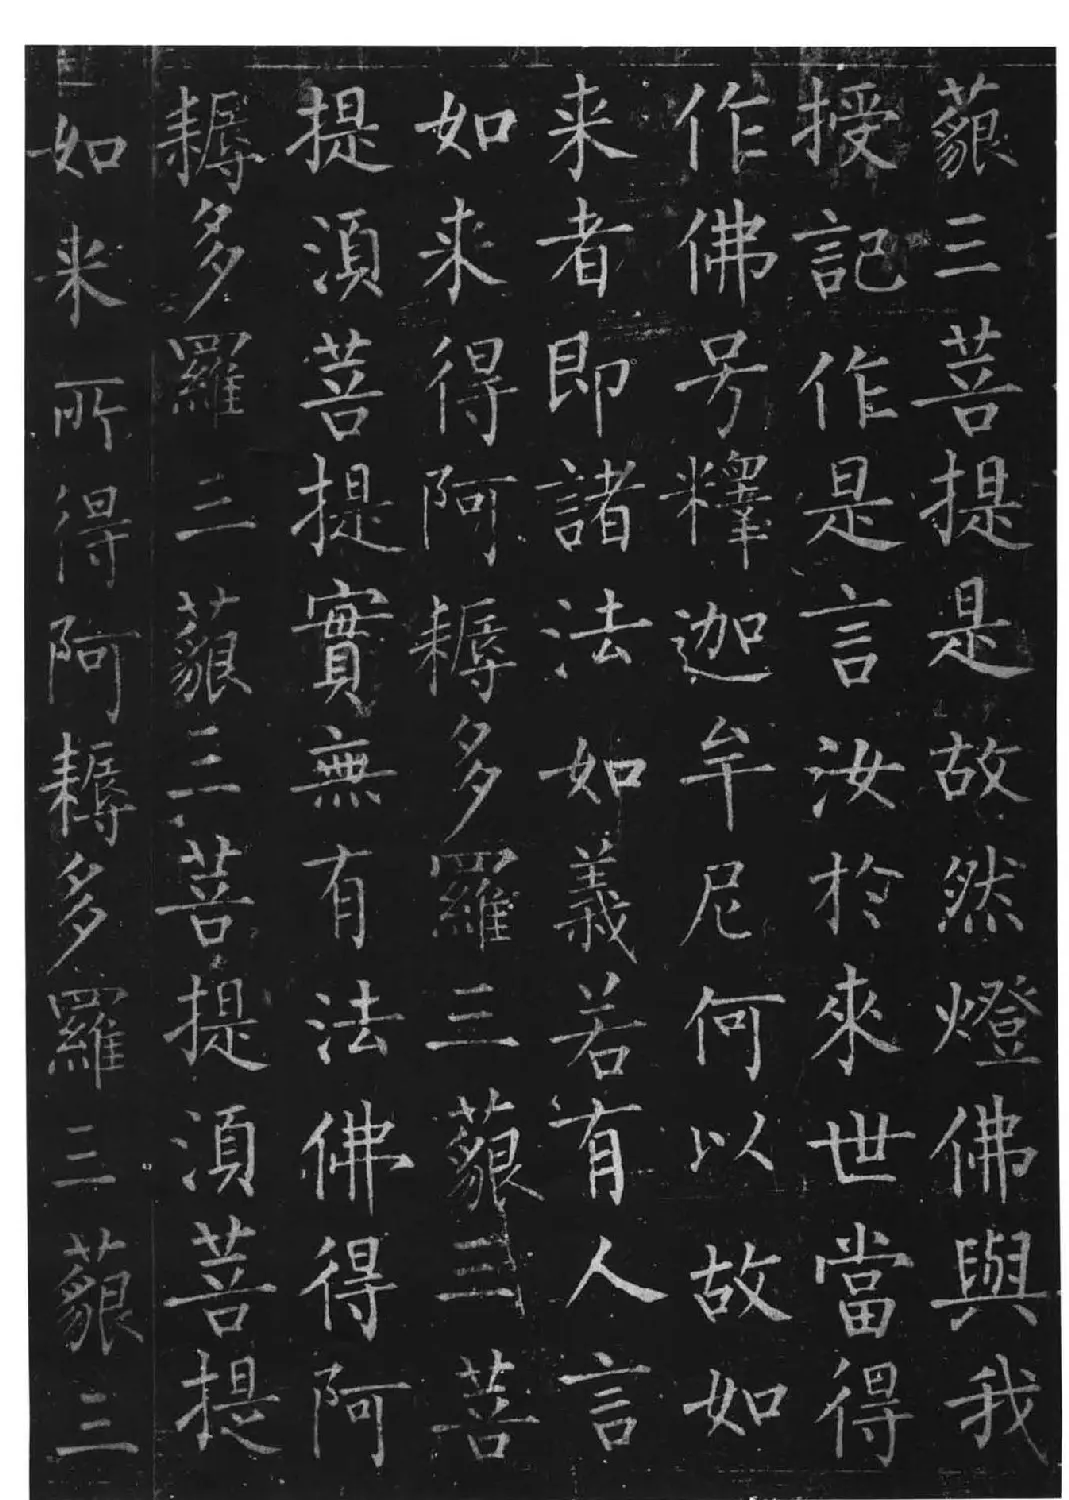 藐三菩提是故然燈佛與我
授記作是言汝於來世當得
作佛号釋迦牟尼何以故如
来者即諸法如義若有人言
如来得阿耨多羅三藐三菩
提湏菩提實無有法佛得阿
耨多羅三藐三菩提湏菩提
如来所得阿耨多羅三藐三